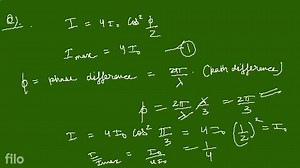 Q).
I = 4I₀ cos² ϕ/2
Imax = 4I₀ — ①
ϕ = phase difference = 2π/λ (path difference)
ϕ = 2π/λ × λ/3 = 2π/3
I = 4I₀ cos² π/3 = 4I₀ (1/2)² = I₀
I/Imax = I₀/4I₀ = 1/4
filo